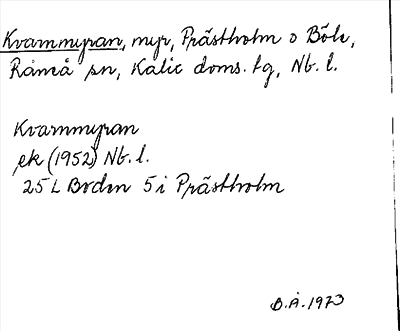 Kvarnmyran, myr, Prästholm o Böle,
Råneå sn, Kalix doms. tg, Nb. l.
Kvarnmyran
ek (1952) Nb. l.
25 L Boden 5 i Prästholm
B.Å. 1973